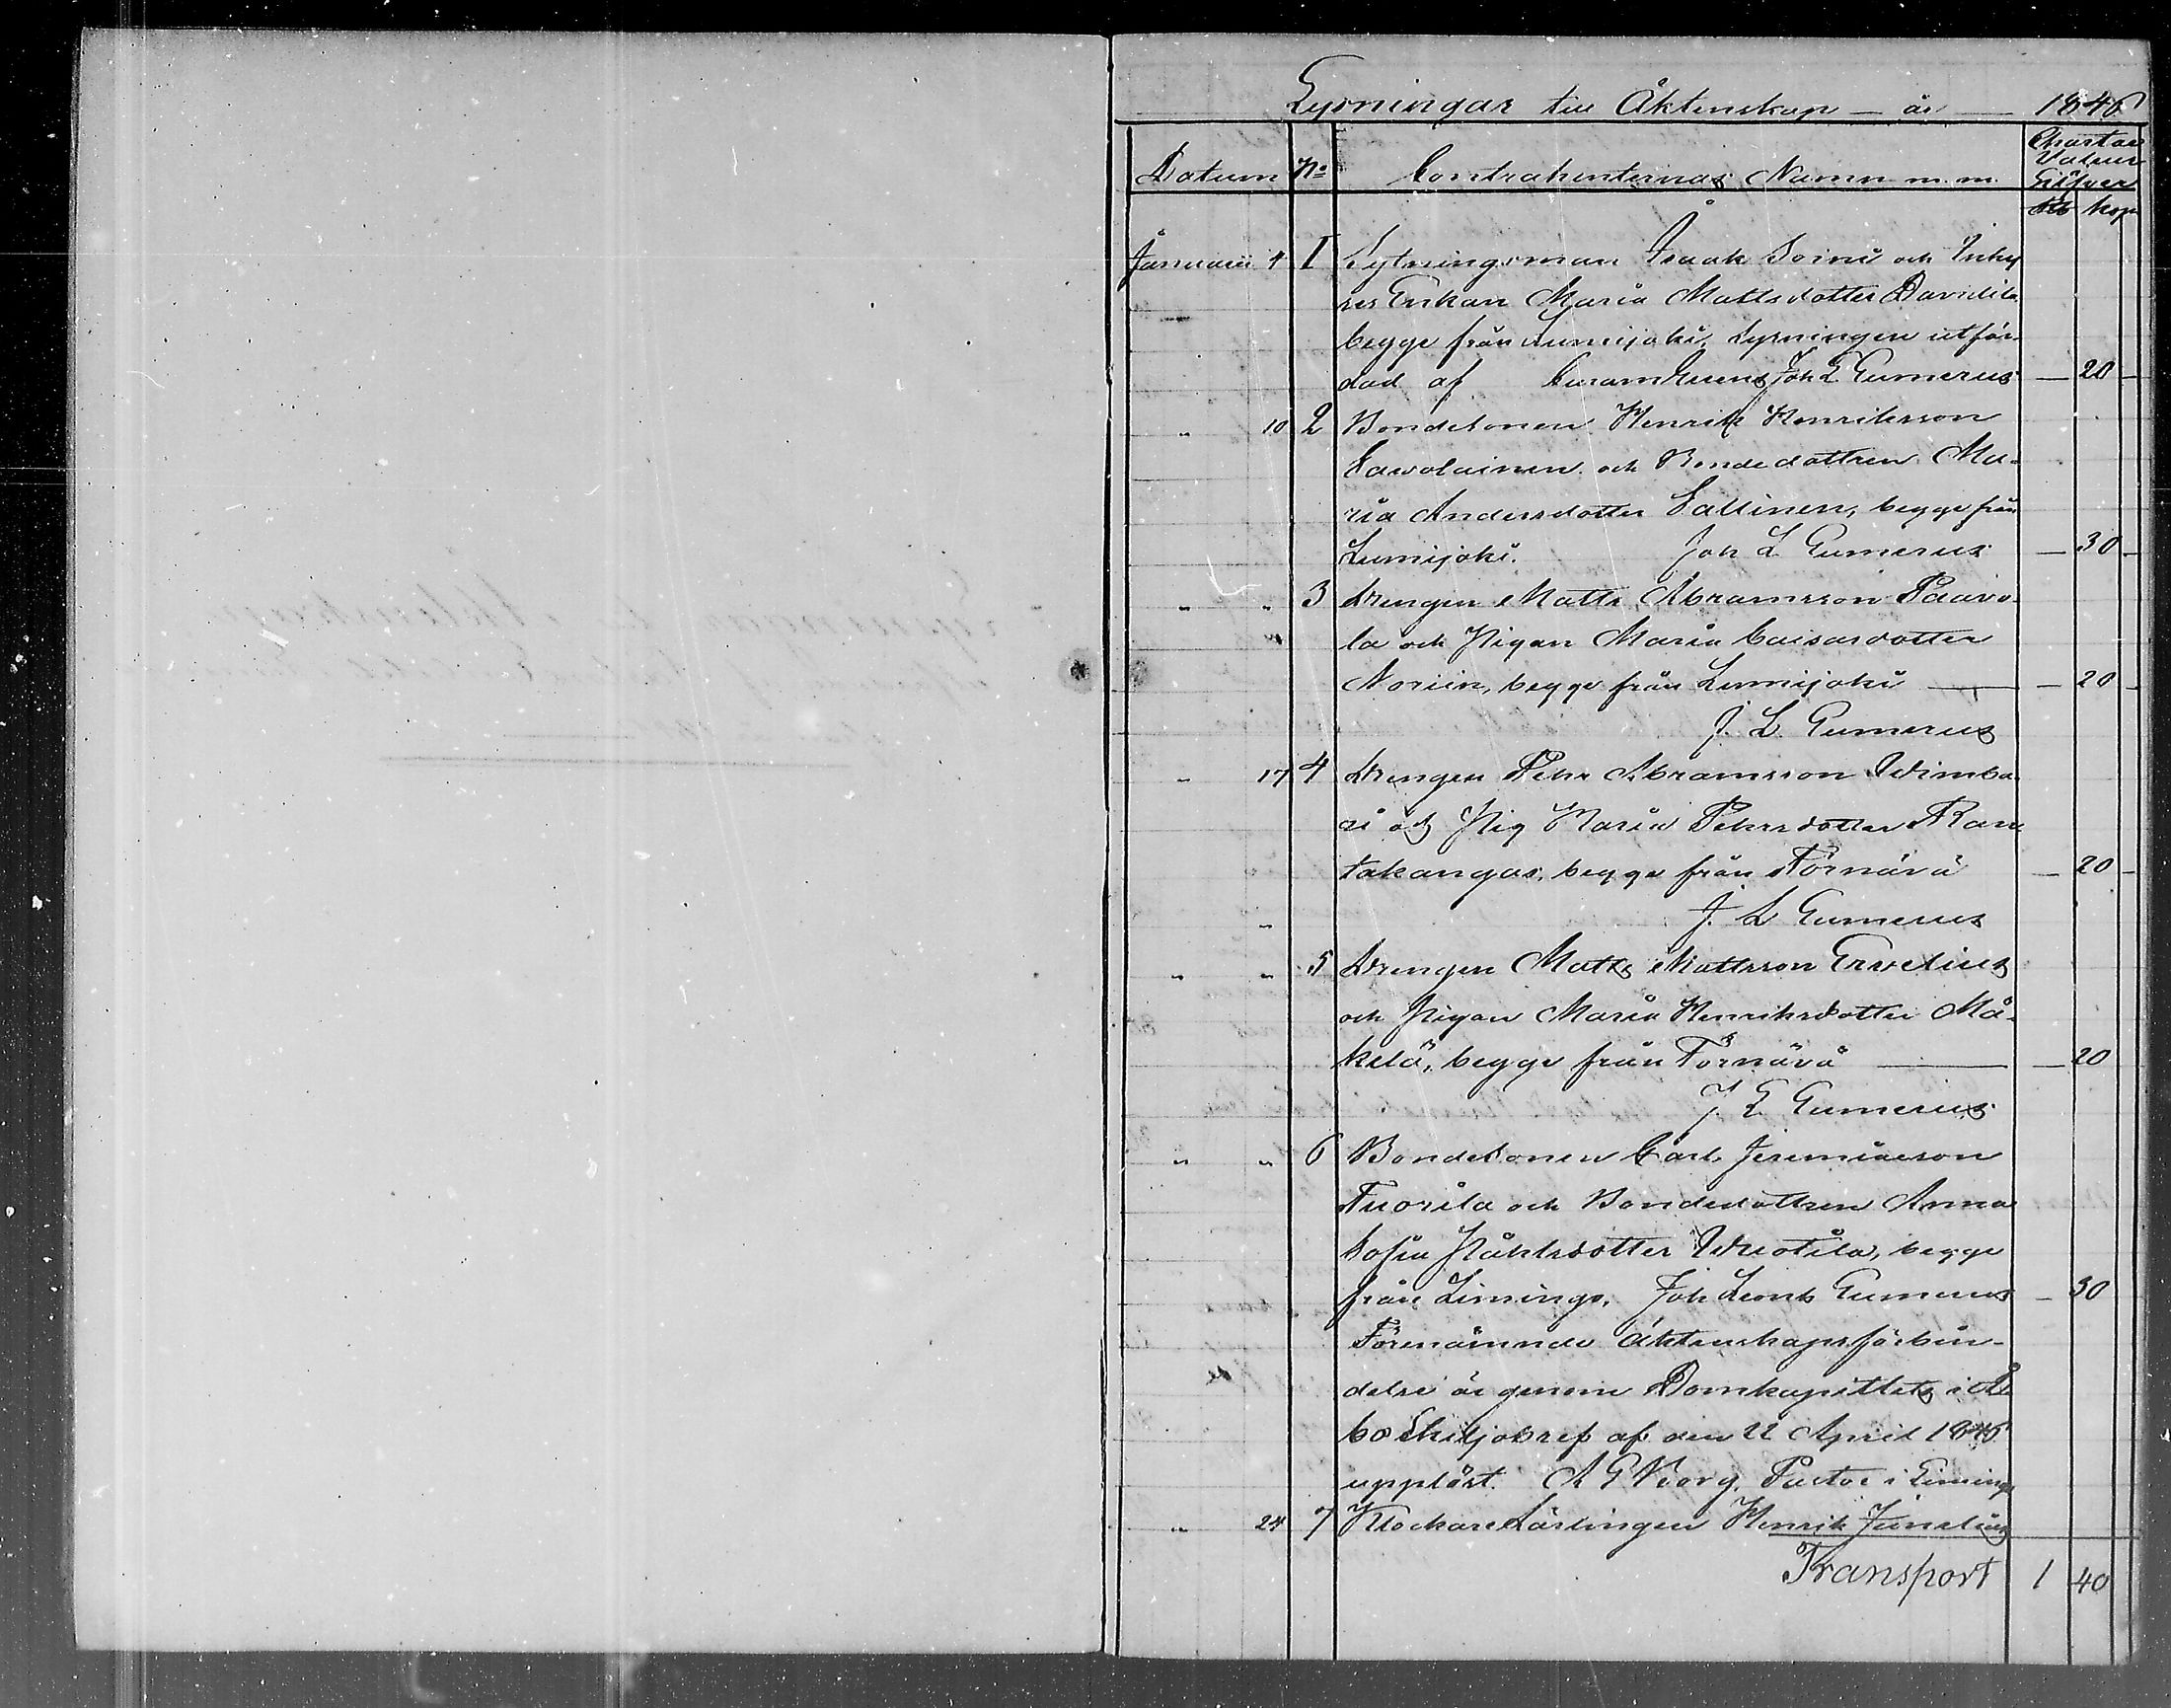 Lysningar till Äktenskap — år — 1846
Datum No Contrahenternas Namn m. m. Chartæ Valeur Silfver
Rub kop
Januarii 4 1 Lytningsman Isaak Soini och Inhy
ses Enkan Maria Mattsdotter Davidila
begge från Lumijoki, Lysningen utfär-
dad af Joh L Gumerus — 20 —
" 10 2 Bondesonen Henrik Henriksson
Sawolainen och Bondedottren Ma-
ria Andersdotter Sallinen, begge från
Lumijoki. Joh L Gumerus — 30 —
" " 3 Drengen Matts Abramsson Paavo-
la och Pigan Maria Caisasdotter
Noriin, begge från Lumijoki — — 20 —
J. L. Gumerus
" 17 4 Drengen Pehr Abramsson Wimba
ri och Pig Maria Pehrsdotter Ran
takangas, begge från Törnävä — 20 —
" J. L Gumerus
" " 5 Drengen Matts Mattsson Ervelius
och Pigan Maria Henriksdotter Mä-
kelä, begge från Törnävä — — 20
J. L Gumerus
" " 6 Bondesonen Carl Jeremiasson
Tuorila och Bondedottren Anna
Sofia begge
från Limingo, Joh Gumerus — 30
Förenämnde äktenskapsförbin-
delse är genom Domkapitlets i Å
bo Skiljobref af den 22 April 1846
upplöst. Pastor i Liming
" 24 7 Klockare Lärlingen Henrik Junelius
Transport 1 40